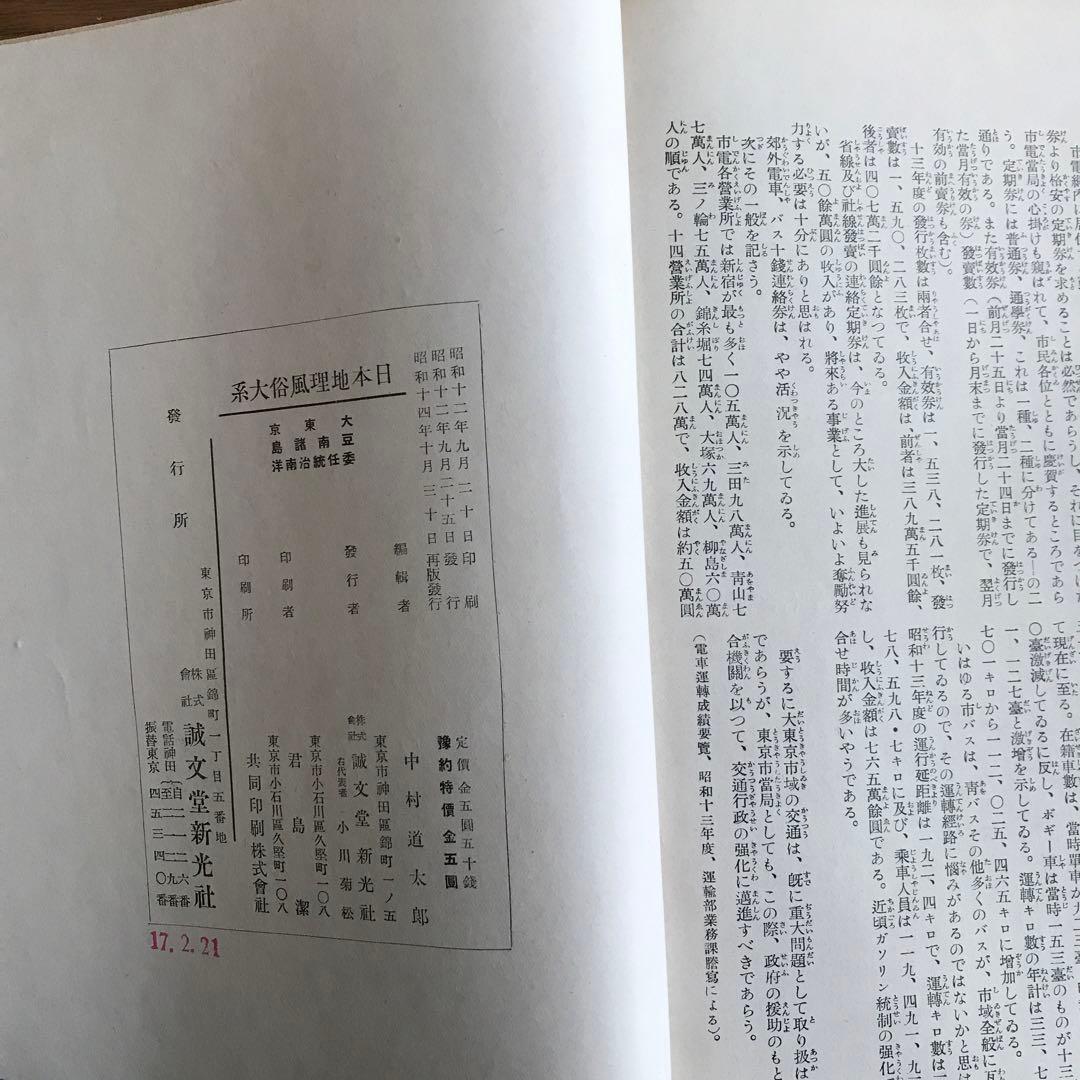 券より格安の定期券を求めることは必然であらうし、それに目をつけた
市電當局の心掛けも窺はれて、市民各位とともに慶賀するところであら
う。定期券には普通券、通學券、これは一種、二種に分けてある―の二
通りである。また有效券(前月二十五日より當月二十四日までに發行し
た當月有效の券)發賣數(一日から月末までに發行した定期券で、翌月
有效の前賣券も含む)。
十三年度の發行枚數は兩者合せ、有效券は一、五三八、二八一枚、發
賣數は一、五九〇、二八三枚で、收入金額は、前者は三八九萬五千圓餘、
後者は四〇七萬二千圓餘となつてゐる。
省線及び社線發賣の連絡定期券は、今のところ大した進展も見られな
いが、五〇餘萬圓の收入があり、將來ある事業として、いよいよ奮勵努
力する必要は十分にありと思はれる。
郊外電車、バス十錢連絡券は、やや活況を示してゐる。
次にその一般を記さう。
市電各營業所では新宿が最も多く一〇五萬人、三田九八萬人、靑山七
七萬人、三ノ輪七五萬人、錦糸堀七四萬人、大塚六九萬人、柳島六〇萬
人の順である。十四營業所の合計は八二八萬で、收入金額は約五〇萬圓
て現在に至る。在籍車數は、當時單車が
〇臺激減してゐるに反し、ボギー車は當時一五三臺のものが十三
一、一二七臺と激增を示してゐる。運轉キロ數の年計は三三、七
七〇一キロから一一二、〇二五、四六五キロに增加してゐる。
いはゆる市バスは、靑バスその他多くのバスが、市域全般に
行してゐるので、その運轉經路に惱みがあるのではないかと思は
昭和十三年度の運行延距離は一九二、四キロで、運轉キロ數は一
七八、五九八・七キロに及び、乘車人員は一一九、四九一、九一
し、收入金額は七六五萬餘圓である。近頃ガソリン統制の强化
合せ時間が多いやうである。
要するに大東京市域の交通は、旣に重大問題として取り扱は
であらうが、東京市當局としても、この際、政府の援助のもと
合機關を以つて、交通行政の强化に邁進すべきであらう。
(電車運轉成績要覽、昭和十三年度、運輸部業務課謄寫による)。
昭和十二年九月二十日印刷
昭和十二年九月二十五日發行
昭和十四年十月三十日再版發行
日本地理風俗大系
大東京
豆南諸島
委任統治南洋
定價金五圓五十錢
豫約特價金五圓
編輯者 中村道太郎
東京市神田區錦町一ノ五
發行者 株式會社 誠文堂新光社
右代表者 小川菊松
東京市小石川區久堅町一〇八
印刷者 君島潔
東京市小石川區久堅町一〇八
印刷所 共同印刷株式會社
東京市神田區錦町一丁目五番地
發行所 株式會社 誠文堂新光社
電話神田(自二一一二六番 至二一二九番
振替東京 四五三四〇番
17.2.21